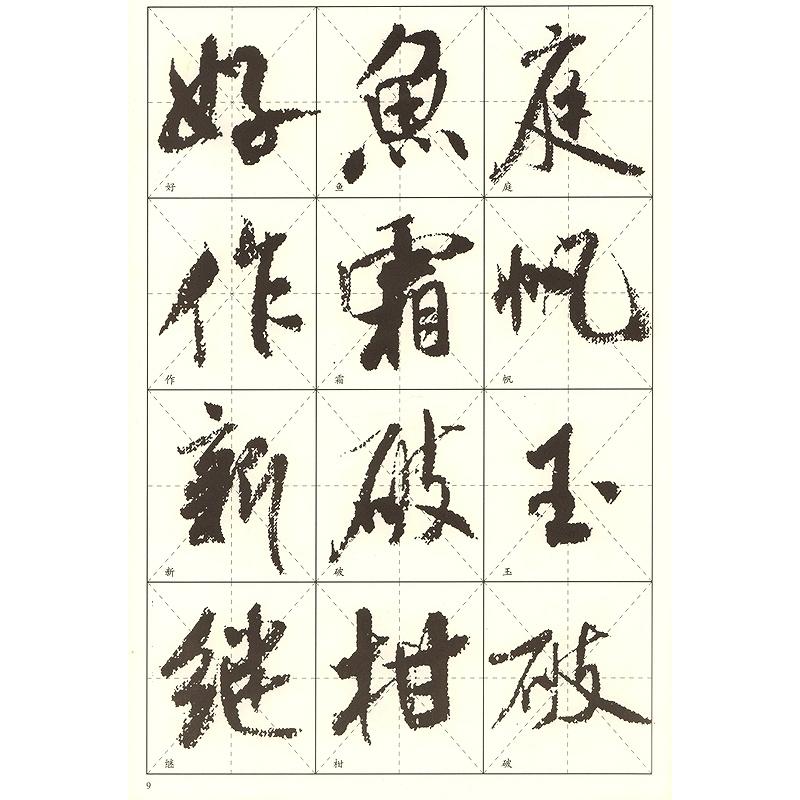 庭
庭
帆
帆
玉
玉
破
破
魚
鱼
霜
霜
破
破
柑
柑
好
好
作
作
新
新
继
继
9